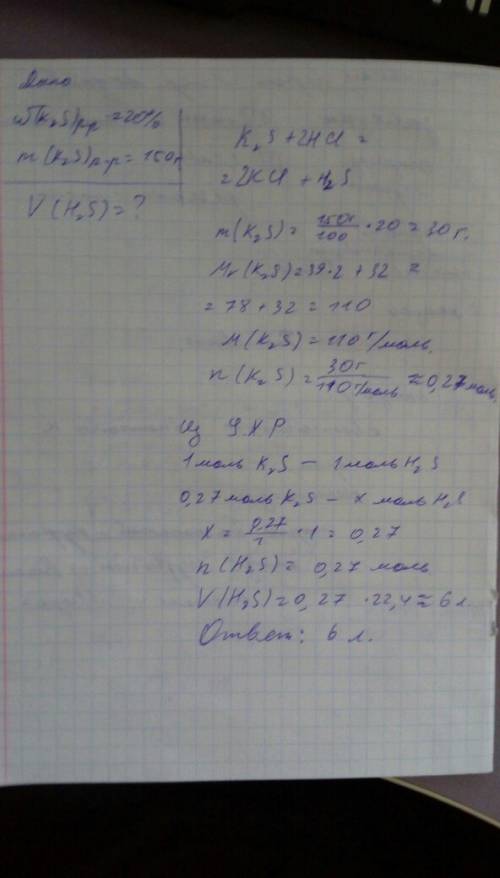 Дано
w(K₂S)р-р = 20%
m(K₂S)р-р = 150г
V(H₂S) = ?
K₂S + 2HCl =
= 2KCl + H₂S
m(K₂S) = 150г/100 · 20 = 30 г.
Mr(K₂S) = 39·2 + 32 =
= 78 + 32 = 110
M(K₂S) = 110 г/моль.
n(K₂S) = 30г/110г/моль ≈ 0,27 моль.
Из УХР
1 моль K₂S – 1 моль H₂S
0,27 моль K₂S – x моль H₂S
x = 0,27/1 · 1 = 0,27
n(H₂S) = 0,27 моль
V(H₂S) = 0,27 · 22,4 ≈ 6 л.
Ответ: 6 л.